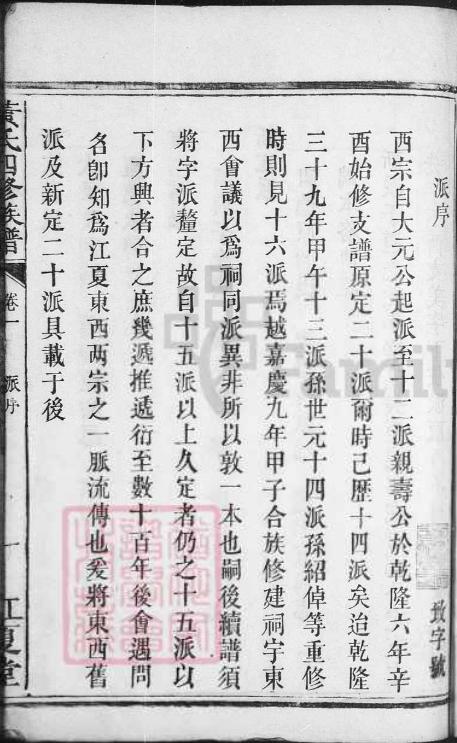 派序
西宗自大元公起派至十二派親壽公於乾隆六年辛
酉始修支譜原定二十派爾時己歷十四派矣迨乾隆
三十九年甲午十三派孫世元十四派孫紹倬等重修
時則見十六派焉越嘉慶九年甲子合族修建祠宇東
西會議以爲祠同派異非所以敦一本也嗣後續譜須
將字派釐定故自十五派以上久定者仍之十五派以
下方興者合之庶幾遞推遞衍至數十百年後會遇問
名卽知爲江夏東西两宗之一脈流傳也爰將東西舊
派及新定二十派具載于後
黃氏四修族譜
卷一
派序
一
江夏堂
字號